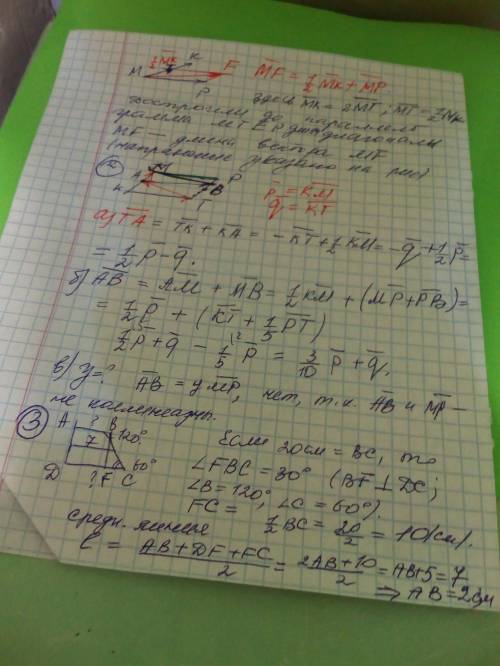 ½M̅K̅ K F M̅F̅ = ½M̅K̅ + M̅P̅
M P здесь M̅K̅ = 2M̅T̅; M̅T̅ = ½M̅K̅
достроили до параллело
грамма MTFP диагональ
MF — длина вектора M̅F̅
(направление указано на рис)
② M P
A B p̅ = K̅M̅
K T q̅ = K̅T̅
а) T̅A̅ = T̅K̅ + K̅A̅ = -K̅T̅ + ½K̅M̅ = -q̅ + ½p̅ =
= ½p̅ - q̅.
б) A̅B̅ = A̅M̅ + M̅B̅ = ½K̅M̅ + (M̅P̅ + P̅B̅) =
= ½p̅ + (K̅T̅ + 1/5 P̅T̅)
½p̅ + q̅ - 1/5 p̅ = 3/10 p̅ + q̅.
в) y = ? A̅B̅ = yM̅P̅, нет, т.к. A̅B̅ и M̅P̅ —
не коллинеарн.
③ A ? B Если 20см = BC, то
7 120° ∠FBC = 30° (BF ⊥ DC;
60° ∠B = 120°, ∠C = 60°).
D ? F C FC = ½BC = 20/2 = 10(см).
средн. линия
ℓ = (AB + DF + FC)/2 = (2AB + 10)/2 = AB + 5 = 7
⇒ AB = 2см